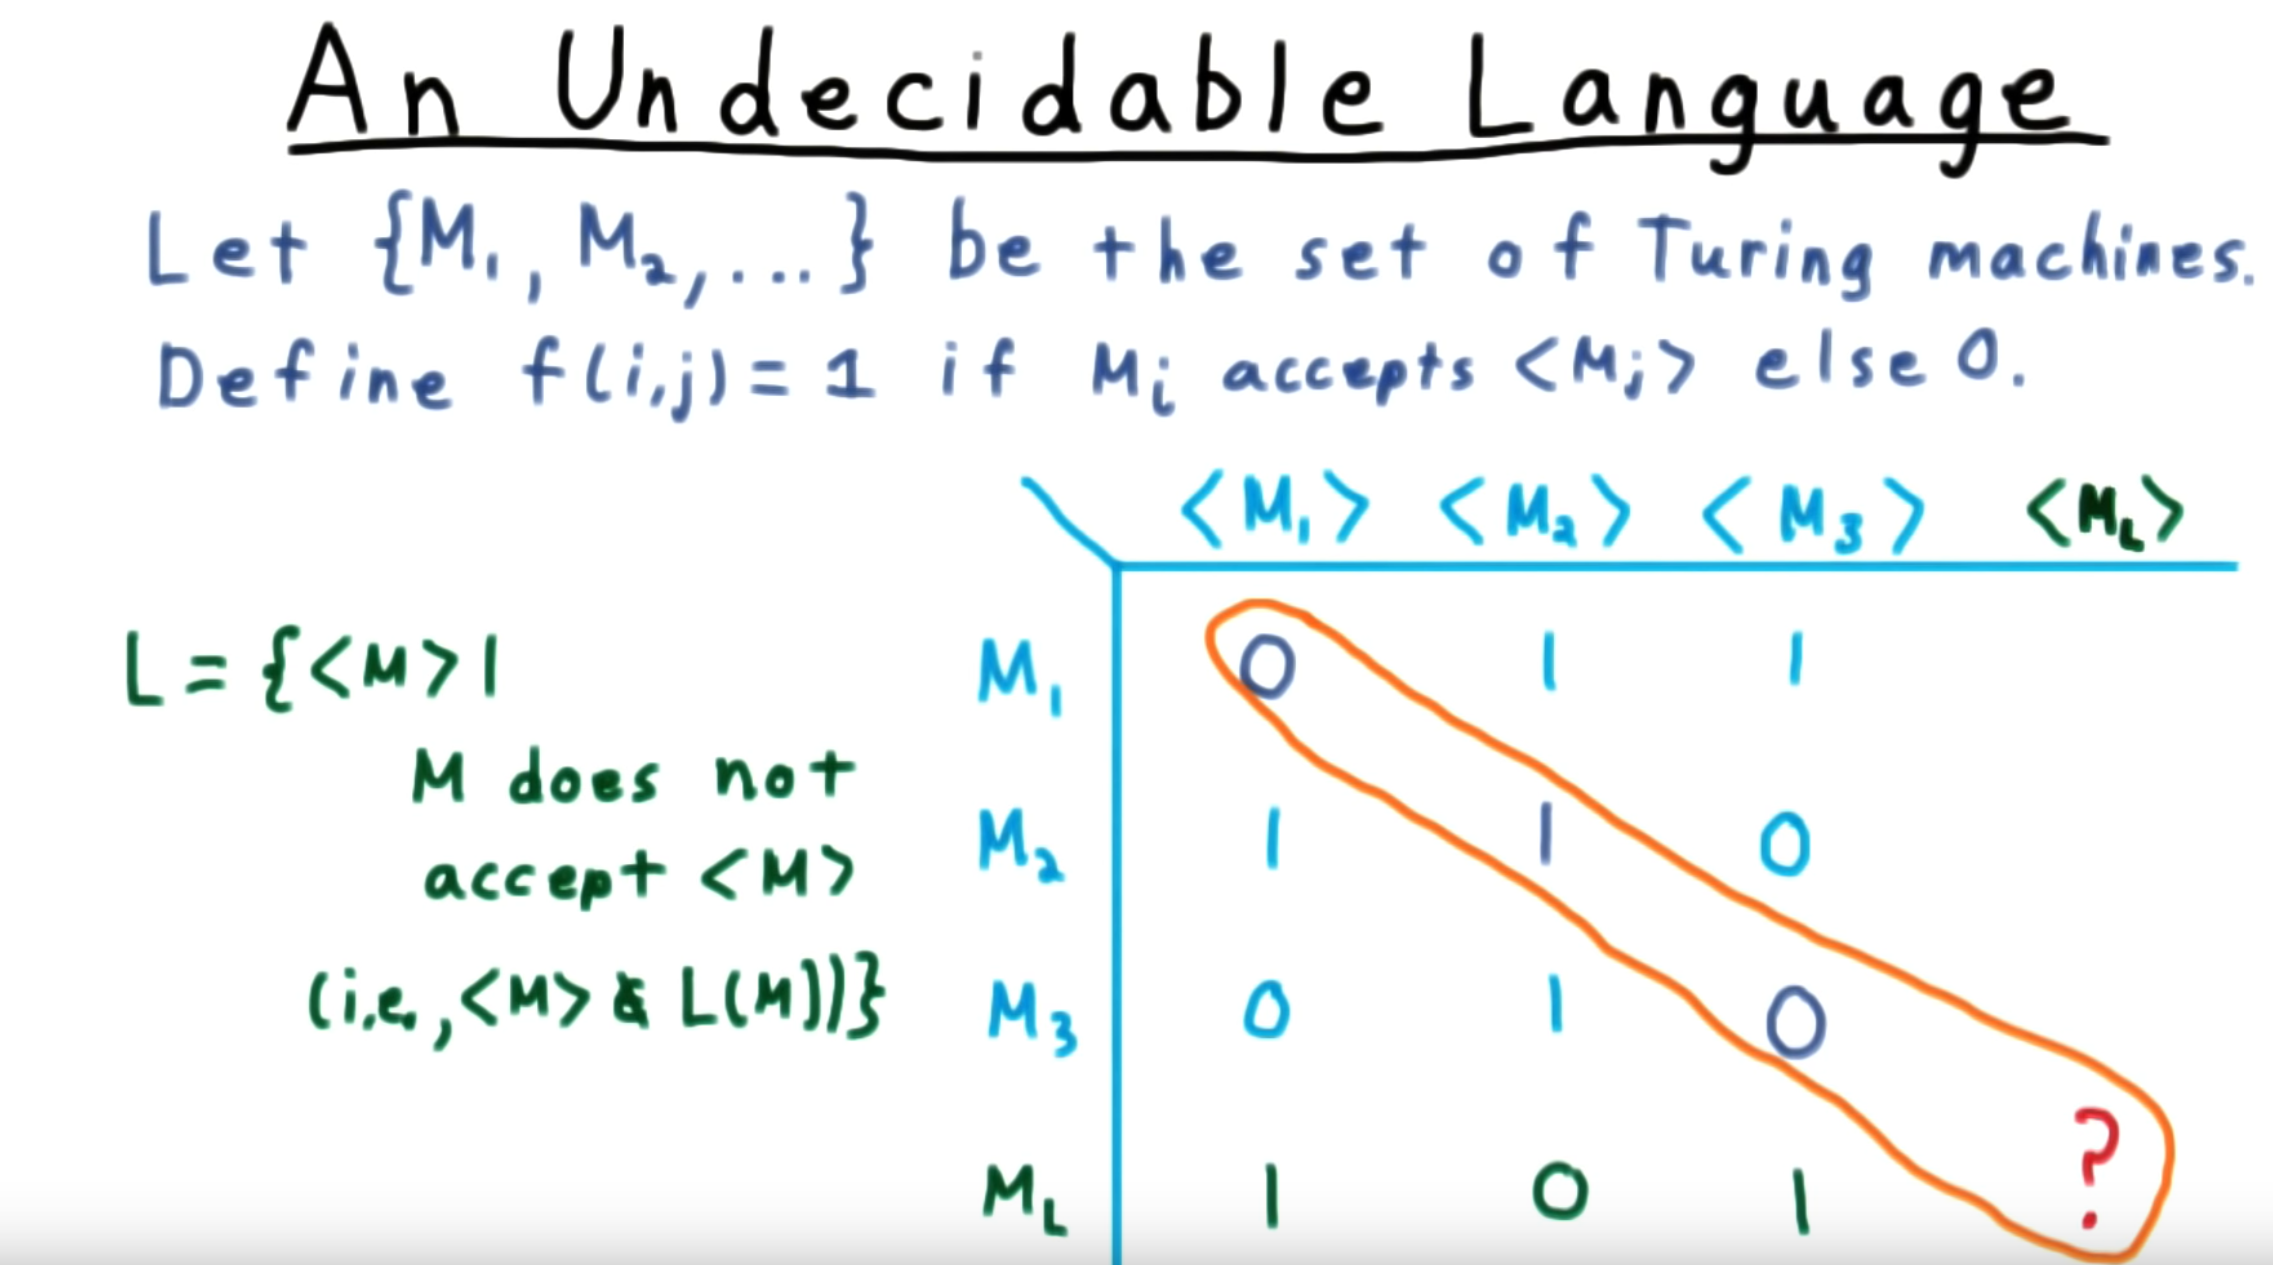 An Undecidable Language
Let {M₁, M₂, ...} be the set of Turing machines.
Define f(i,j) = 1 if Mⱼ accepts <Mᵢ> else 0.
<M₁> <M₂> <M₃> <M_L>
L = {<M> |
M does not
accept <M>
(i.e., <M> ∉ L(M))}
M₁ 0 1 1
M₂ 1 1 0
M₃ 0 1 0
M_L 1 0 1 ?